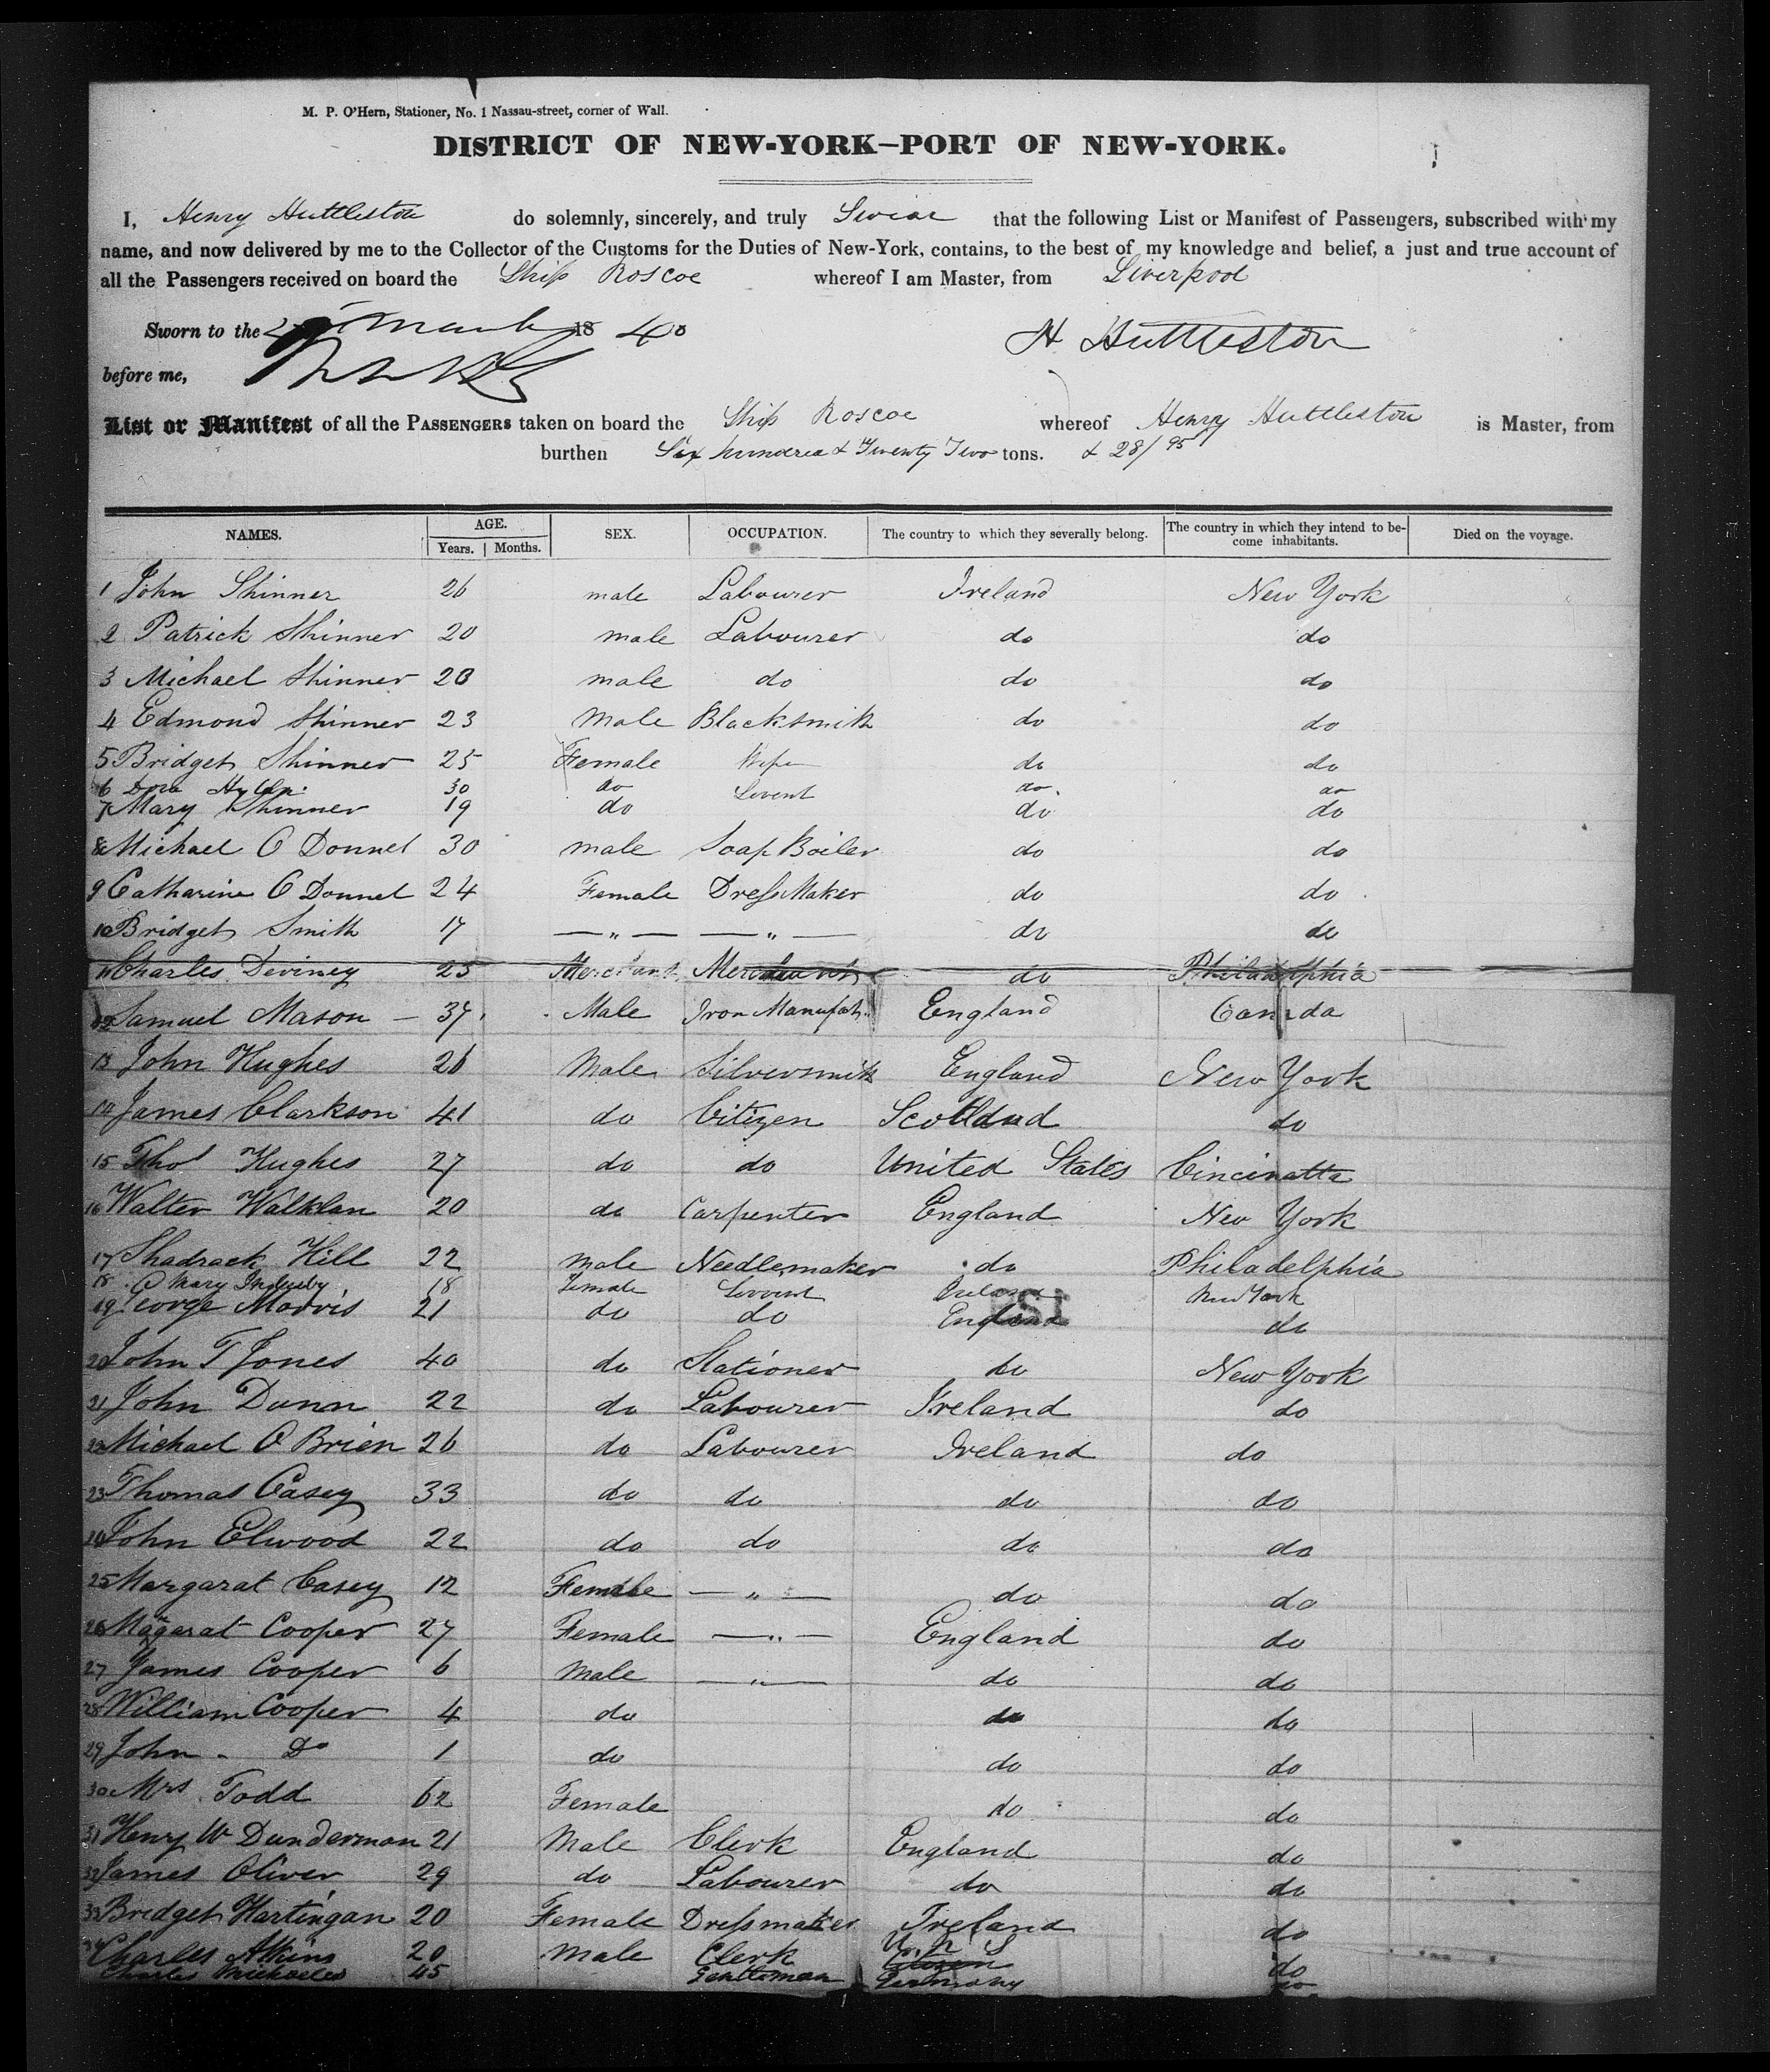 M. P. O'Hern, Stationer, No. 1 Nassau-street, corner of Wall.
DISTRICT OF NEW-YORK—PORT OF NEW-YORK.
I, Henry Huttleston do solemnly, sincerely, and truly Swear that the following List or Manifest of Passengers, subscribed with my
name, and now delivered by me to the Collector of the Customs for the Duties of New-York, contains, to the best of my knowledge and belief, a just and true account of
all the Passengers received on board the Ship Roscoe whereof I am Master, from Liverpool
Sworn to the March 1840 H Huttleston
before me,
List or Manifest of all the PASSENGERS taken on board the Ship Roscoe whereof Henry Huttleston is Master, from
burthen Six hundred & Twenty Two tons. & 28/95
NAMES. AGE. SEX. OCCUPATION. The country to which they severally belong. The country in which they intend to become inhabitants. Died on the voyage.
Years. Months.
1 John Shinner 26 male Labourer Ireland New York
2 Patrick Shinner 20 male Labourer do do
3 Michael Shinner 20 male do do do
4 Edmond Shinner 23 Male Blacksmith do do
5 Bridget Shinner 25 Female Wife do do
6 Dora 30 do Servent do do
7 Mary Shinner 19 do do do
8 Michael O Donnel 30 male Soap Boiler do do
9 Catharine O Donnel 24 Female Dress Maker do do
10 Bridget Smith 17 — " — — " — do do
11 Charles Deviney 25 Merchant Merchant do Philadelphia
12 Samuel Mason — 37 Male Iron Manufat. England Canada
13 John Hughes 26 Male Silversmith England New York
14 James Clarkson 41 do Citizen Scotland do
15 Thos Hughes 27 do do United States Cincinatta
16 Walter Walklan 20 do Carpenter England New York
17 Shadrack Hill 22 Male Needlemaker do Philadelphia
18 Mary 18 Female Servent Ireland New York
19 George Morris 21 do do England do
20 John T Jones 40 do Stationer do New York
21 John Dunn 22 do Labourer Ireland do
22 Michael O Brien 26 do Labourer Ireland do
23 Thomas Casey 33 do do do do
24 John Elwood 22 do do do do
25 Margarat Casey 12 Female — " — do do
26 Magarat Cooper 27 Female — " — England do
27 James Cooper 6 Male — " — do do
28 William Cooper 4 do do do
29 John - Do 1 do do do
30 Mrs Todd 62 Female do do
31 Henry W Dunderman 21 Male Clerk England do
32 James Oliver 29 do Labourer do do
33 Bridget Hartingan 20 Female Dressmaker Ireland do
34 Charles Atkins 20 Male Clerk U. S Citizen do
Charles Michaeles 45 Gentleman Germany do